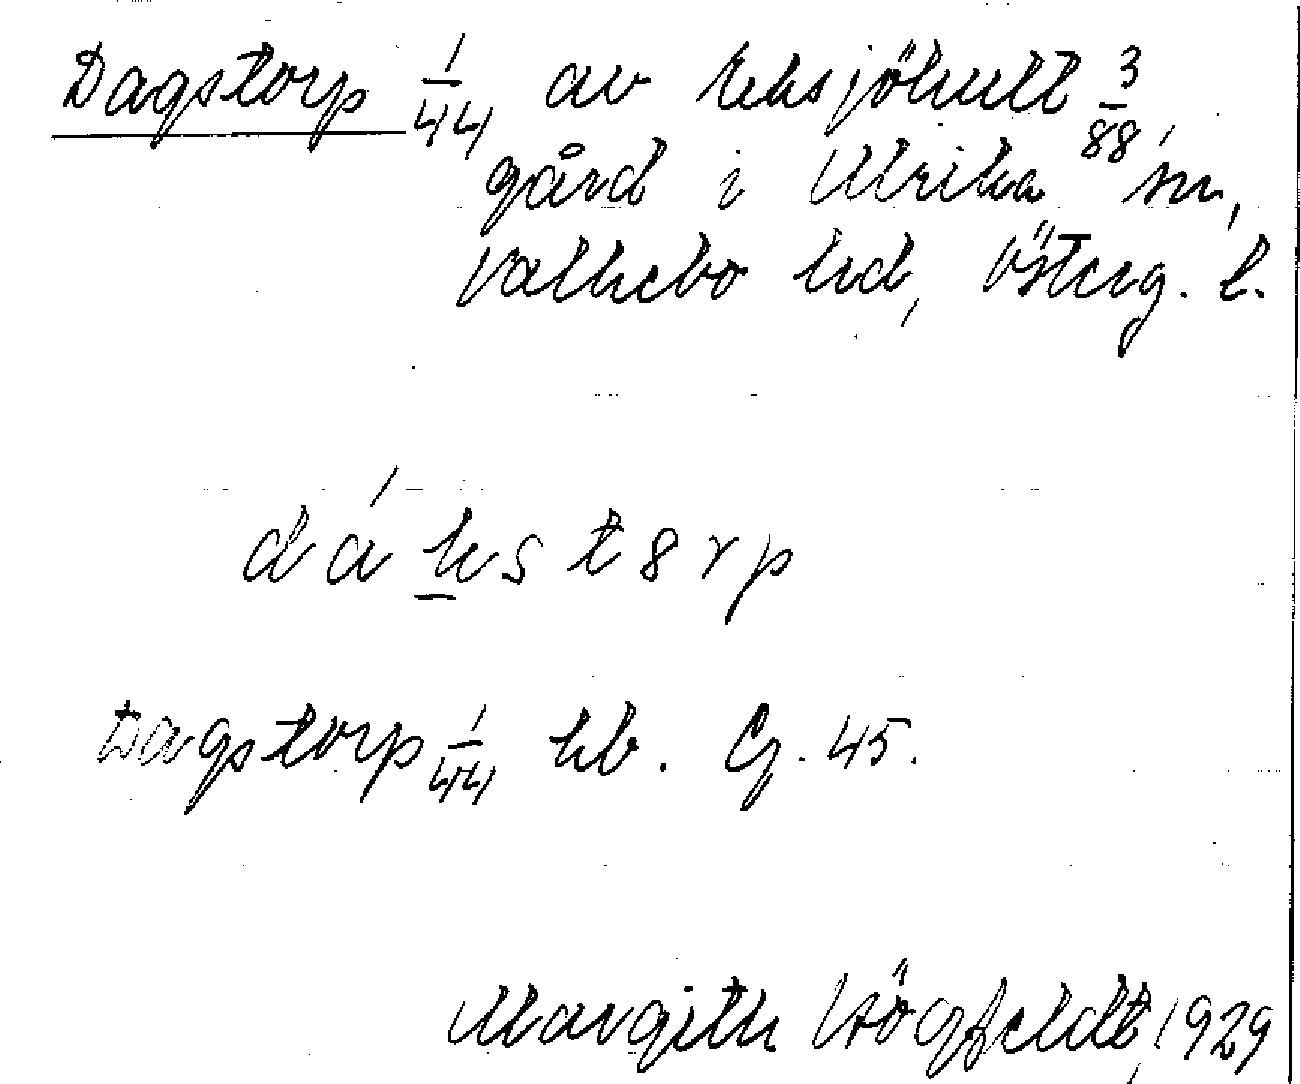 Dagstorp 1/44 av Eksjöhult 3/88,
gård i Ulrika sn,
Valkebo hd, Österg. l.
dákst8rp
Dagstorp 1/44 hb. Cg. 45.
Margith Högfeldt, 1929